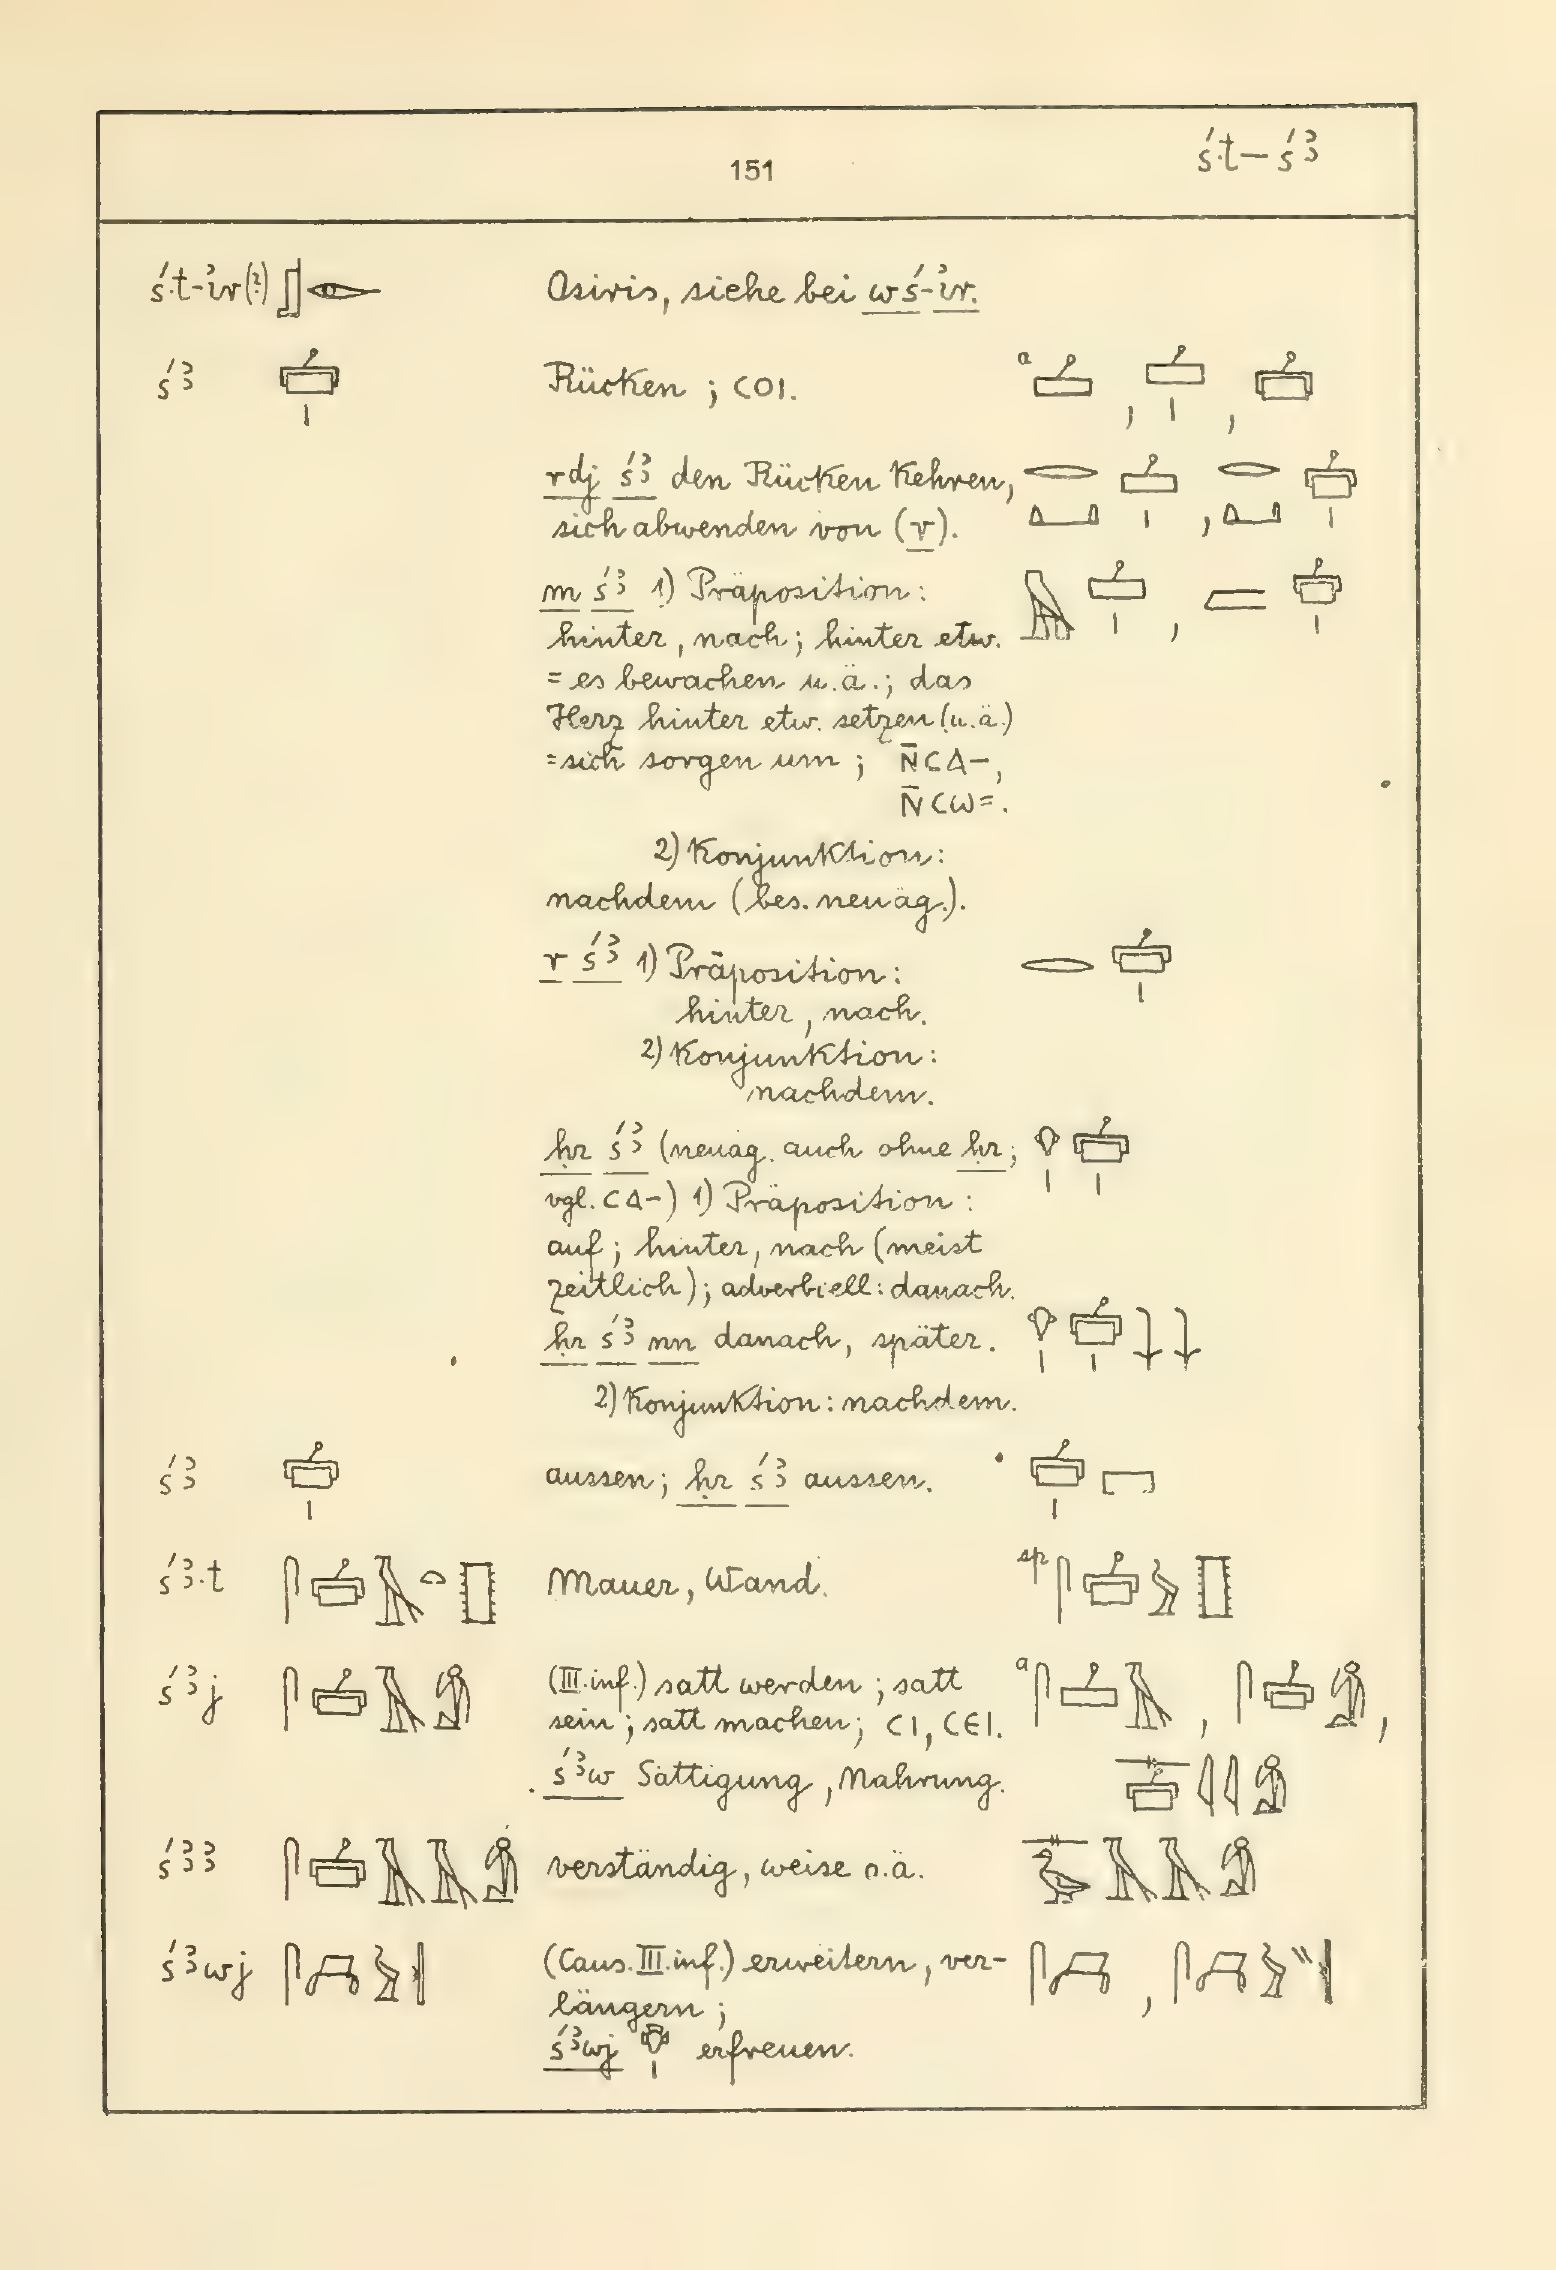 151
ś·t — śꜣ
ś·t-ỉr(?) Osiris, siehe bei wś-ỉr.
śꜣ Rücken ; ⲤⲞⲒ. a , ,
rdj śꜣ den Rücken kehren,
sich abwenden von (r). ,
m śꜣ 1) Präposition :
hinter, nach ; hinter etw. ,
= es bewachen u.ä. ; das
Herz hinter etw. setzen (u.ä.)
= sich sorgen um ; Ⲛ̄ⲤⲀ-,
Ⲛ̄ⲤⲰ=.
2) Konjunktion :
nachdem (bes. neuäg.).
r śꜣ 1) Präposition :
hinter, nach.
2) Konjunktion :
nachdem.
ḥr śꜣ (neuäg. auch ohne ḥr ;
vgl. ⲤⲀ-) 1) Präposition :
auf ; hinter, nach (meist
zeitlich) ; adverbiell : danach.
ḥr śꜣ nn danach, später.
2) Konjunktion : nachdem.
śꜣ aussen ; ḥr śꜣ aussen.
śꜣ·t Mauer, Wand. sp
śꜣj (III.inf.) satt werden ; satt a
sein ; satt machen ; ⲤⲒ, ⲤⲈⲒ. , ,
śꜣw Sättigung, Nahrung.
śꜣꜣ verständig, weise o.ä.
śꜣwj (Caus. III.inf.) erweitern, ver-
längern ; ,
śꜣwj erfreuen.